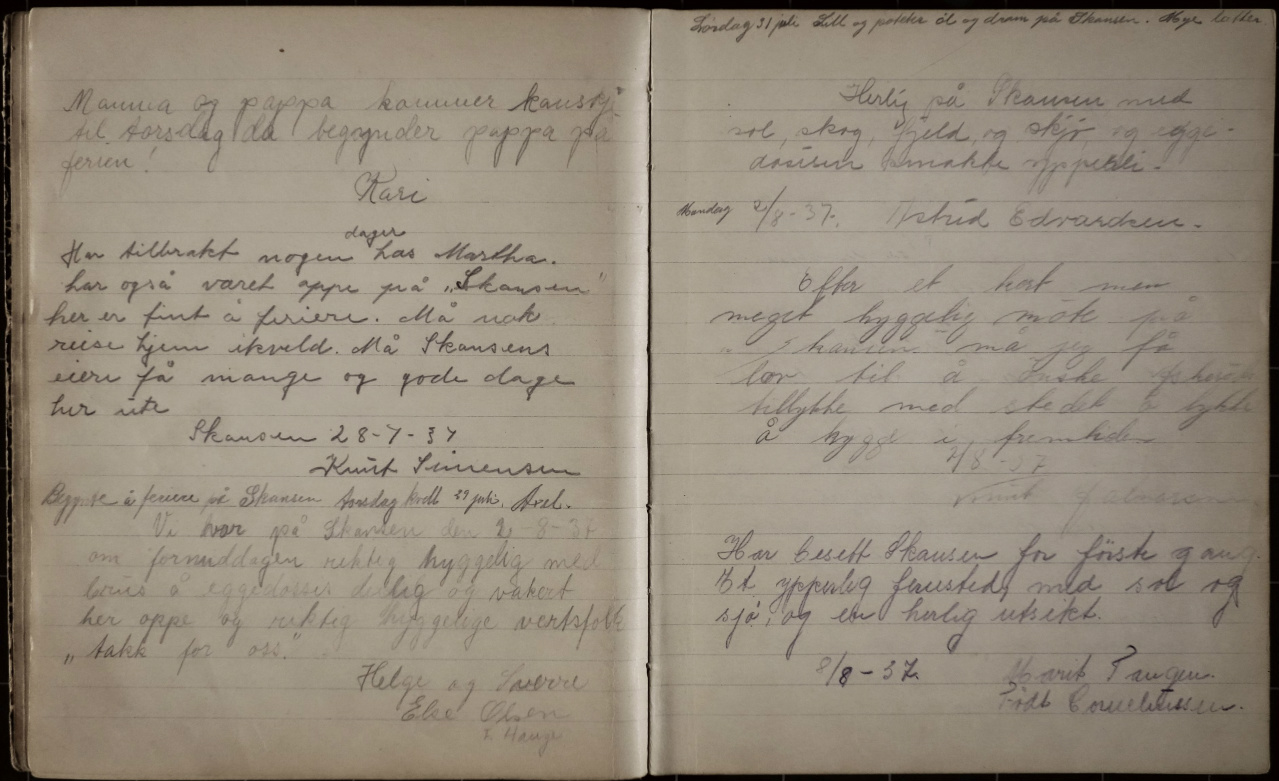 Mamma og pappa kommer kanskje
til torsdag da begynder pappa på
ferien!
Kari
Har tilbrakt nogen dager hos Martha.
har også været oppe på „Skansen"
her er fint å feriere. Må nok
reise hjem ikveld. Må Skansens
eiere få mange og gode dage
her ute
Skansen 28-7-37
Knut Simensen
Begynte å feriere på Skansen torsdag kveld 29 juli. Axel.
Vi var på Skansen den 2-8-37
om formiddagen riktig hyggelig med
å eggedosis deilig og vakert
her oppe og riktig hyggelige vertsfolk
„takk for oss."
Helge og Sverre
Else Olsen
Lørdag 31 juli Lill og øl og dram på Skansen. Mye latter
Herlig på Skansen med
sol, skog, fjeld, og sjø, og egge-
dosisen smakte ypperli.
Mandag 2/8-37. Astrid Edvardsen.
Efter et kort men
meget hyggelig møte på
Skansen må jeg få
lov til å ønske
tillykke med stedet å lykke
å bygge i fremtiden
2/8-37
Knut
Har besett Skansen for første gang.
Et ypperleg feriested, med sol og
sjø, og en herlig utsikt.
8/8-37. Marit Tangen.
Født Corneliussen.